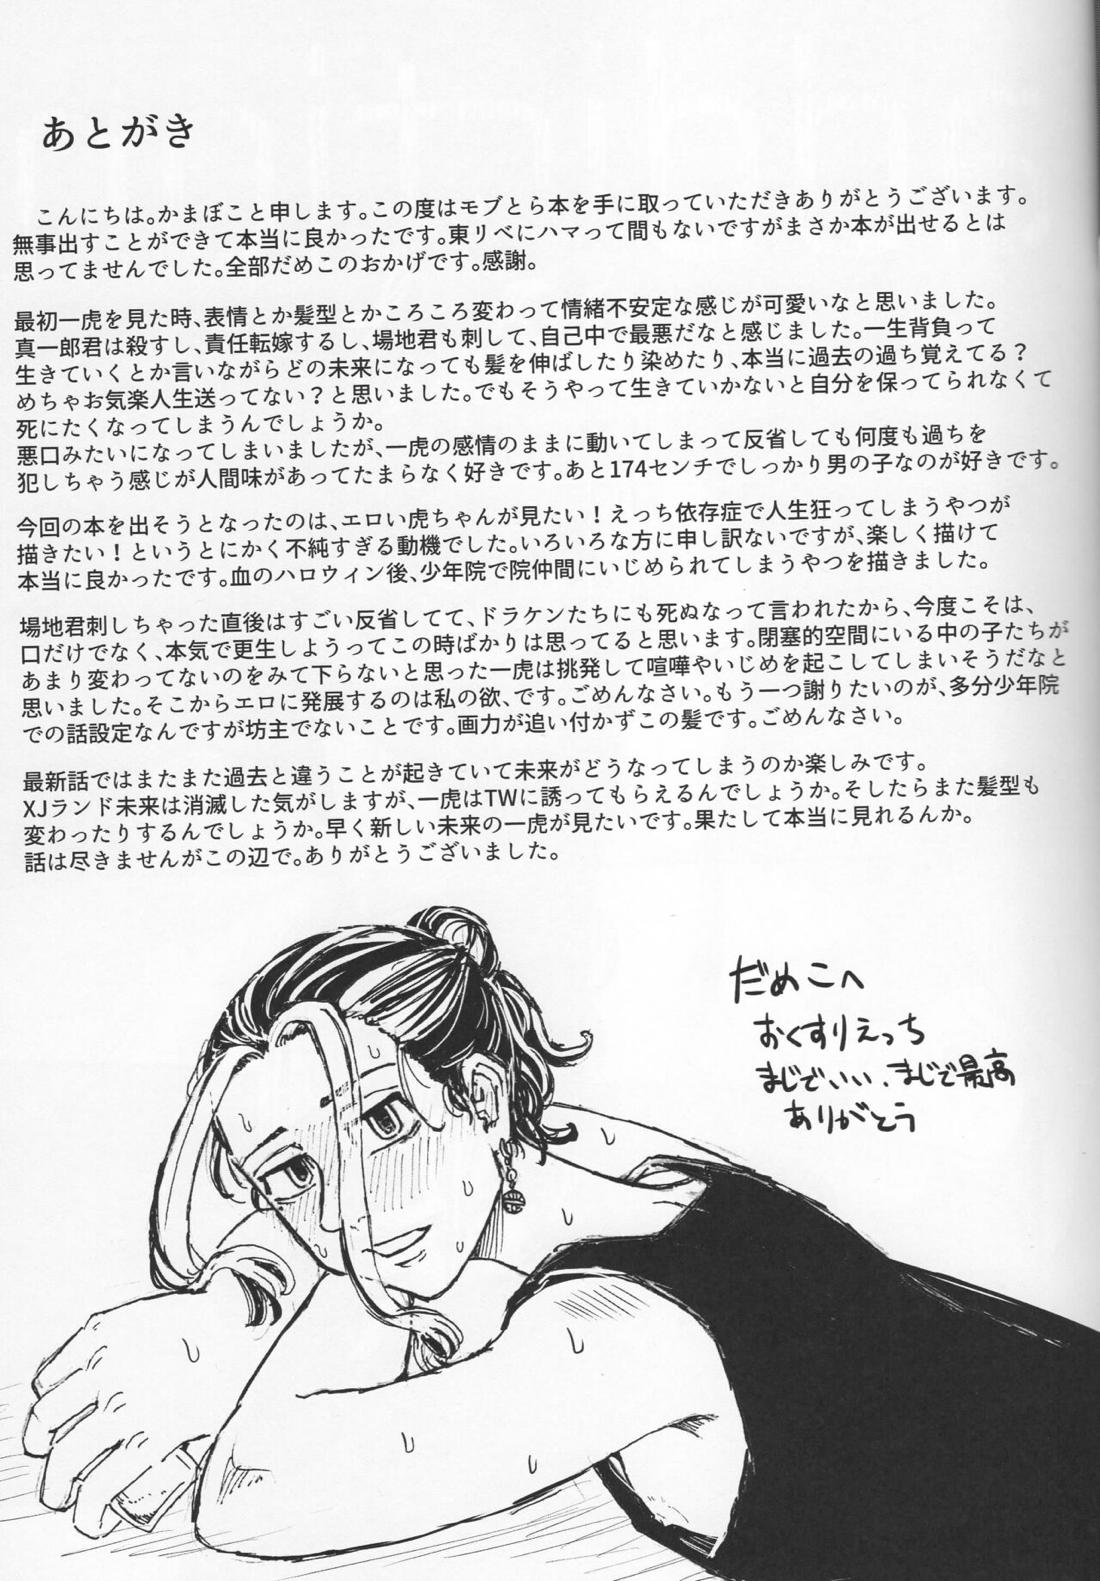 あとがき
こんにちは。かまぼこと申します。この度はモブとら本を手に取っていただきありがとうございます。
無事出すことができて本当に良かったです。東リべにハマって間もないですがまさか本が出せるとは
思ってませんでした。全部だめこのおかげです。感謝。
最初一虎を見た時、表情とか髪型とかころころ変わって情緒不安定な感じが可愛いなと思いました。
真一郎君は殺すし、責任転嫁するし、場地君も刺して、自己中で最悪だなと感じました。一生背負って
生きていくとか言いながらどの未来になっても髪を伸ばしたり染めたり、本当に過去の過ち覚えてる？
めちゃお気楽人生送ってない？と思いました。でもそうやって生きていかないと自分を保ってられなくて
死にたくなってしまうんでしょうか。
悪口みたいになってしまいましたが、一虎の感情のままに動いてしまって反省しても何度も過ちを
犯しちゃう感じが人間味があってたまらなく好きです。あと174センチでしっかり男の子なのが好きです。
今回の本を出そうとなったのは、エロい虎ちゃんが見たい！えっち依存症で人生狂ってしまうやつが
描きたい！というとにかく不純すぎる動機でした。いろいろな方に申し訳ないですが、楽しく描けて
本当に良かったです。血のハロウィン後、少年院で院仲間にいじめられてしまうやつを描きました。
場地君刺しちゃった直後はすごい反省してて、ドラケンたちにも死ぬなって言われたから、今度こそは、
口だけでなく、本気で更生しようってこの時ばかりは思ってると思います。閉塞的空間にいる中の子たちが
あまり変わってないのをみて下らないと思った一虎は挑発して喧嘩やいじめを起こしてしまいそうだなと
思いました。そこからエロに発展するのは私の欲、です。ごめんなさい。もう一つ謝りたいのが、多分少年院
での話設定なんですが坊主でないことです。画力が追い付かずこの髪です。ごめんなさい。
最新話ではまたまた過去と違うことが起きていて未来がどうなってしまうのか楽しみです。
XJランド未来は消滅した気がしますが、一虎はTWに誘ってもらえるんでしょうか。そしたらまた髪型も
変わったりするんでしょうか。早く新しい未来の一虎が見たいです。果たして本当に見れるんか。
話は尽きませんがこの辺で。ありがとうございました。
だめこへ
おくすりえっち
まじでいい、まじで最高
ありがとう